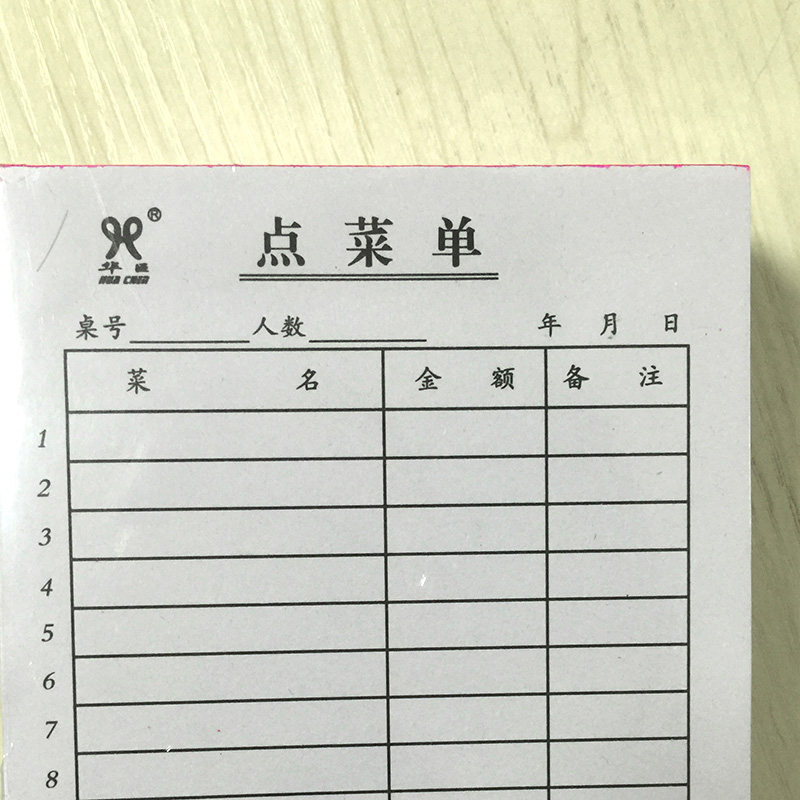 ®
华晨
HUA CHEN
点菜单
桌号________人数________ 年 月 日
菜 名 金 额 备 注
1
2
3
4
5
6
7
8